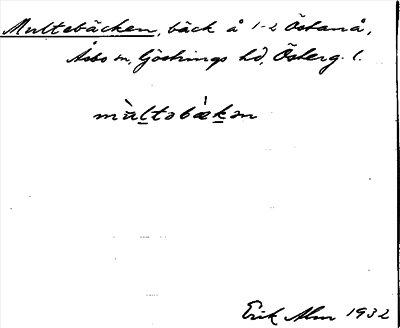 Multebäcken, bäck å 1-2 Östanå,
Åsbo sn, Göstrings hd, Österg. l.
mùltabǽkən
Erik Alm 1932